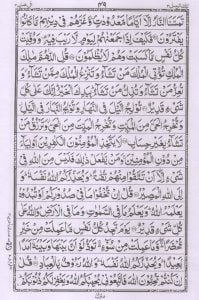 ٤٩
تَمَسَّنَا النَّارُ اِلَّاۤ اَيَّامًا مَّعْدُوْدٰتٍ وَّغَرَّهُمْ فِیْ دِيْنِهِمْ مَّا كَانُوْا
يَفْتَرُوْنَ فَكَيْفَ اِذَا جَمَعْنٰهُمْ لِيَوْمٍ لَّا رَيْبَ فِيْهِ وَوُفِّيَتْ
كُلُّ نَفْسٍ مَّا كَسَبَتْ وَهُمْ لَا يُظْلَمُوْنَ قُلِ اللّٰهُمَّ مٰلِكَ
الْمُلْكِ تُؤْتِی الْمُلْكَ مَنْ تَشَآءُ وَتَنْزِعُ الْمُلْكَ مِمَّنْ تَشَآءُ
وَتُعِزُّ مَنْ تَشَآءُ وَتُذِلُّ مَنْ تَشَآءُ بِيَدِكَ الْخَيْرُ اِنَّكَ عَلٰی كُلِّ
شَیْءٍ قَدِيْرٌ تُوْلِجُ الَّيْلَ فِی النَّهَارِ وَتُوْلِجُ النَّهَارَ فِی الَّيْلِ
وَتُخْرِجُ الْحَیَّ مِنَ الْمَيِّتِ وَتُخْرِجُ الْمَيِّتَ مِنَ الْحَیِّ وَتَرْزُقُ مَنْ
تَشَآءُ بِغَيْرِ حِسَابٍ لَا يَتَّخِذِ الْمُؤْمِنُوْنَ الْكٰفِرِيْنَ اَوْلِيَآءَ
مِنْ دُوْنِ الْمُؤْمِنِيْنَ وَمَنْ يَّفْعَلْ ذٰلِكَ فَلَيْسَ مِنَ اللّٰهِ فِیْ
شَیْءٍ اِلَّاۤ اَنْ تَتَّقُوْا مِنْهُمْ تُقٰىةً وَيُحَذِّرُكُمُ اللّٰهُ نَفْسَهٗ وَ
اِلَی اللّٰهِ الْمَصِيْرُ قُلْ اِنْ تُخْفُوْا مَا فِیْ صُدُوْرِكُمْ اَوْ تُبْدُوْهُ
يَعْلَمْهُ اللّٰهُ وَيَعْلَمُ مَا فِی السَّمٰوٰتِ وَمَا فِی الْاَرْضِ وَاللّٰهُ عَلٰی
كُلِّ شَیْءٍ قَدِيْرٌ يَوْمَ تَجِدُ كُلُّ نَفْسٍ مَّا عَمِلَتْ مِنْ خَيْرٍ
مُّحْضَرًا وَّمَا عَمِلَتْ مِنْ سُوْٓءٍ تَوَدُّ لَوْ اَنَّ بَيْنَهَا وَبَيْنَهٗۤ اَمَدًۢا
بَعِيْدًا وَيُحَذِّرُكُمُ اللّٰهُ نَفْسَهٗ وَاللّٰهُ رَءُوْفٌۢ بِالْعِبَادِ قُلْ اِنْ
كُنْتُمْ تُحِبُّوْنَ اللّٰهَ فَاتَّبِعُوْنِیْ يُحْبِبْكُمُ اللّٰهُ وَيَغْفِرْ لَكُمْ ذُنُوْبَكُمْ